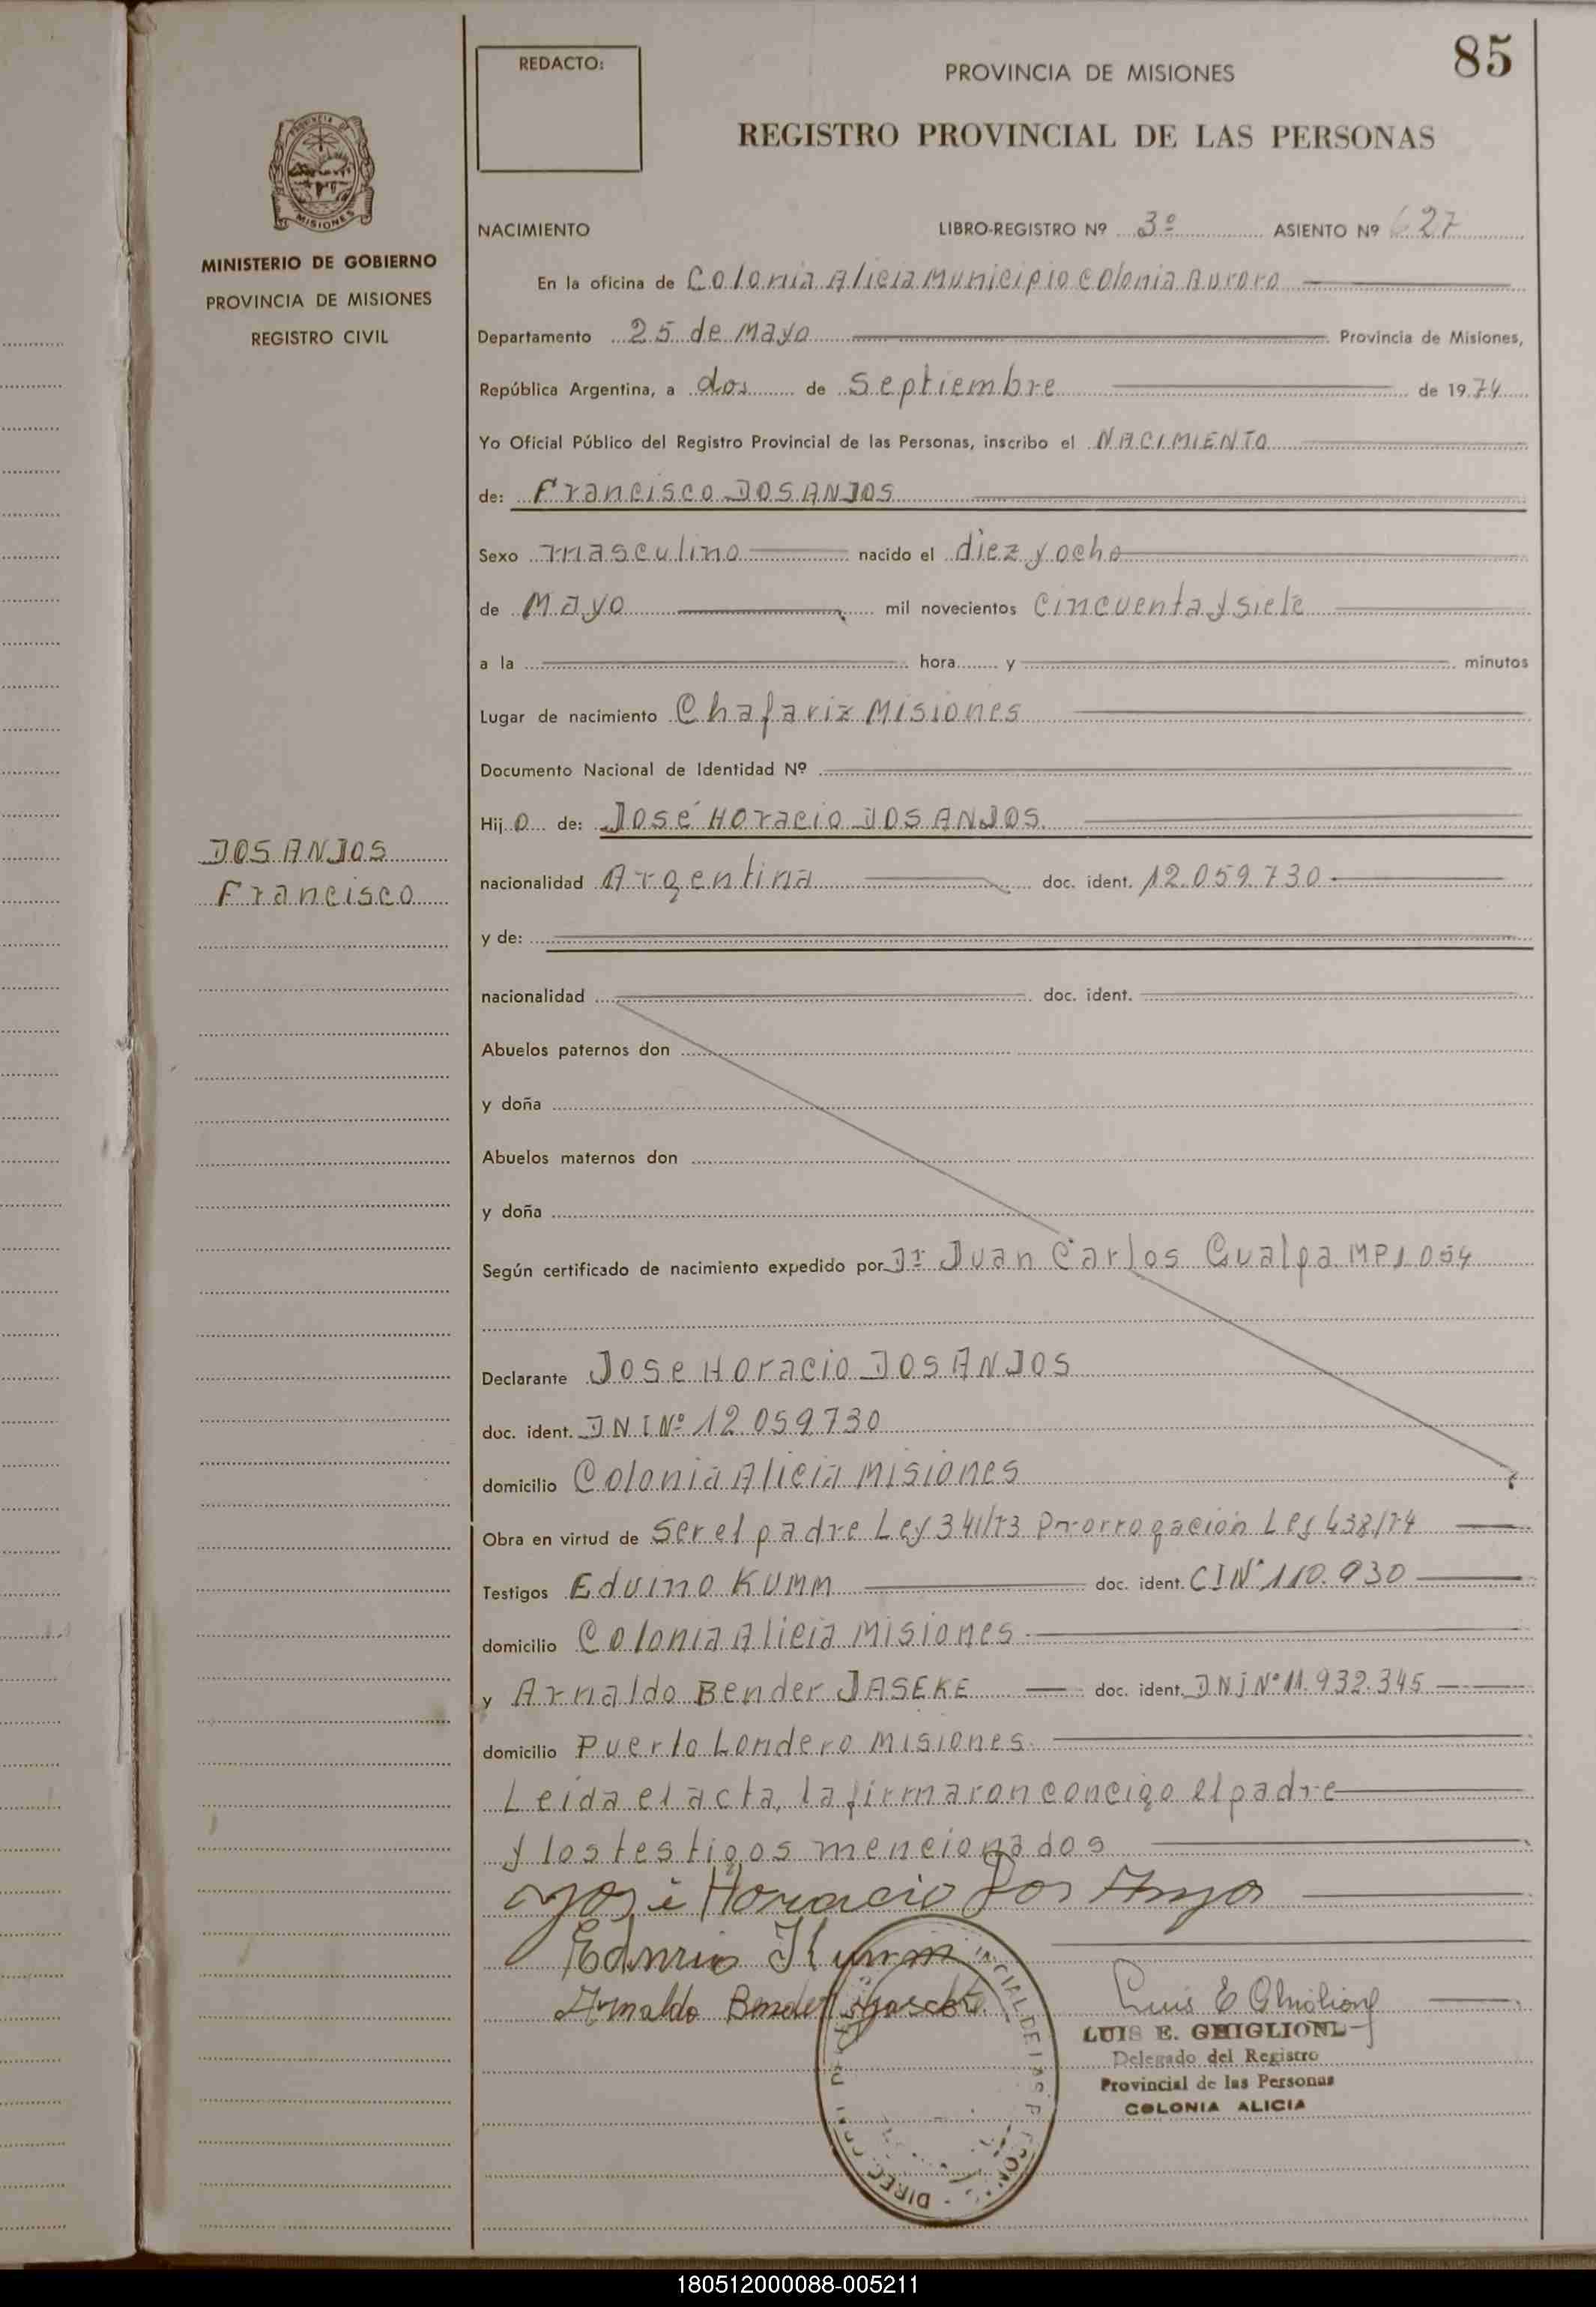 85
REDACTO:
PROVINCIA DE MISIONES
REGISTRO PROVINCIAL DE LAS PERSONAS
PROVINCIA DE
MISIONES
MINISTERIO DE GOBIERNO
PROVINCIA DE MISIONES
REGISTRO CIVIL
NACIMIENTO LIBRO-REGISTRO Nº 3º ASIENTO Nº 627
En la oficina de Colonia Alicia Municipio Colonia Aurora
Departamento 25 de Mayo Provincia de Misiones,
República Argentina, a dos de Septiembre de 1974
Yo Oficial Público del Registro Provincial de las Personas, inscribo el NACIMIENTO
de: Francisco DOS ANJOS
Sexo masculino nacido el diez y ocho
de Mayo mil novecientos cincuenta y siete
a la hora y minutos
Lugar de nacimiento Chafariz Misiones
Documento Nacional de Identidad Nº
Hijo de: José Horacio DOS ANJOS
DOS ANJOS
Francisco
nacionalidad Argentina doc. ident. 12.059.730
y de:
nacionalidad doc. ident.
Abuelos paternos don
y doña
Abuelos maternos don
y doña
Según certificado de nacimiento expedido por Dr Juan Carlos Gualpa MP1054
Declarante Jose Horacio DOS ANJOS
doc. ident. DNI Nº 12.059.730
domicilio Colonia Alicia Misiones
Obra en virtud de ser el padre Ley 341/73 Prorrogación Ley 438/74
Testigos Eduino KUMM doc. ident. CI Nº 110.930
domicilio Colonia Alicia Misiones
y Arnaldo Bender JASEKE doc. ident. DNI Nº 11.932.345
domicilio Puerto Londero Misiones
Leida el acta, la firmaron concigo el padre
y los testigos mencionados
José Horacio Dos Anjos
Kumm
Arnaldo Bender
Luis E Ghiglione
LUIS E. GHIGLIONE
Delegado del Registro
Provincial de las Personas
COLONIA ALICIA
180512000088-005211